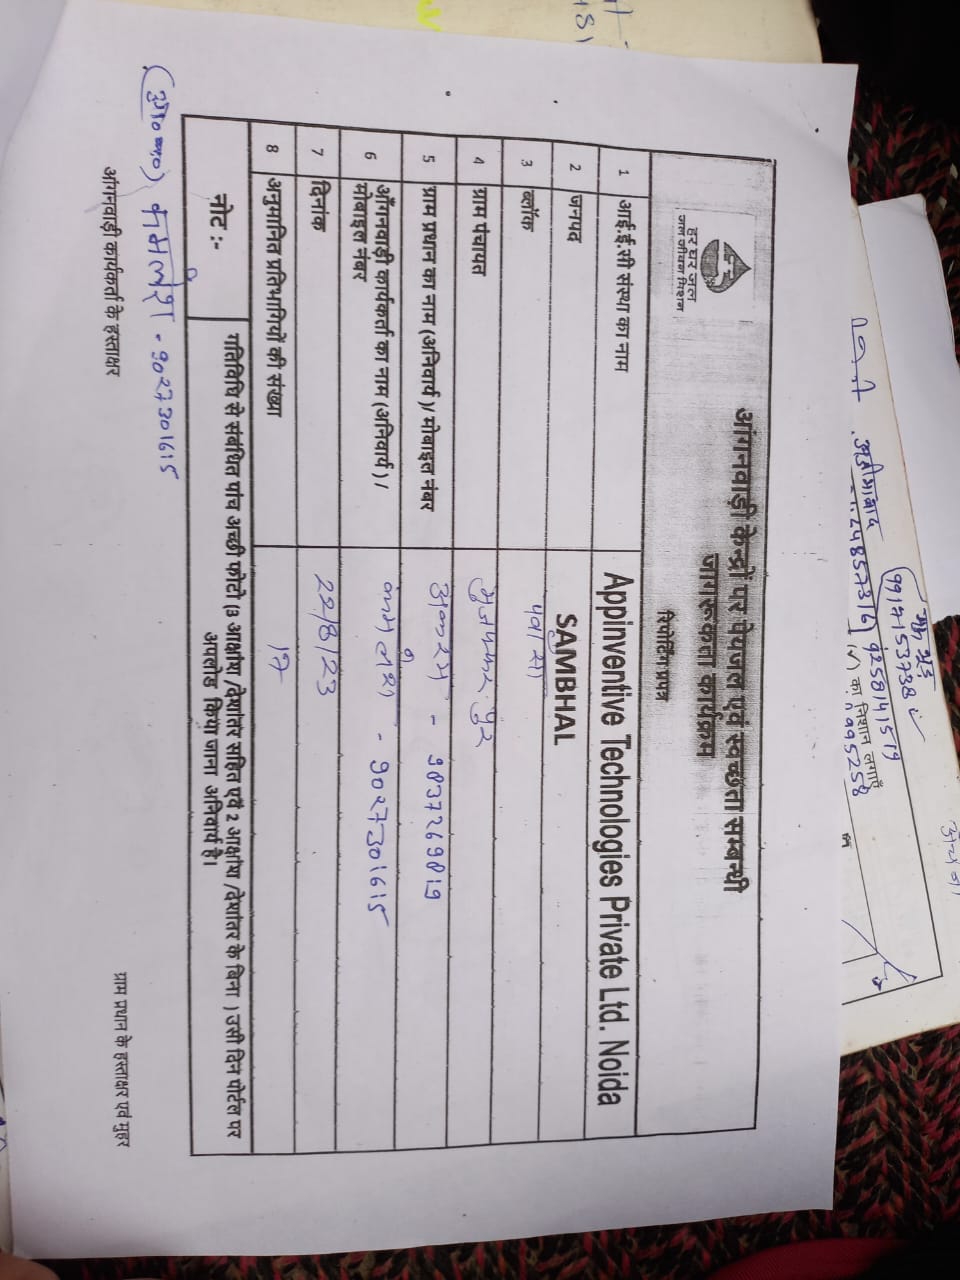 हर घर जल
जल जीवन मिशन
आंगनवाड़ी केन्द्रों पर पेयजल एवं स्वच्छता सम्बन्धी
जागरुकता कार्यक्रम
रिपोर्टिंग प्रपत्र
1 आई.ई.सी संस्था का नाम Appinventive Technologies Private Ltd. Noida
2 जनपद SAMBHAL
3 ब्लॉक पवांसा
4 ग्राम पंचायत मुजफ्फरपुर
5 ग्राम प्रधान का नाम (अनिवार्य)/ मोबाइल नंबर अकरम - 9837269819
6 आँगनवाड़ी कार्यकर्ता का नाम (अनिवार्य) /
मोबाइल नंबर कमलेश - 9027301615
7 दिनांक 22/8/23
8 अनुमानित प्रतिभागियों की संख्या 17
नोट :- गतिविधि से संबंधित पांच अच्छी फोटो (3 आक्षांश /देषांतर सहित एवँ 2 आक्षांष /देषांतर के बिना ) उसी दिन पोर्टल पर
अपलोड किया जाना अनिवार्य है।
(आ०का०) कमलेश - 9027301615
आंगनवाड़ी कार्यकर्ता के हस्ताक्षर ग्राम प्रधान के हस्ताक्षर एवं मुहर
9917153738
9258141519
(✓) का निशान लगाएँ